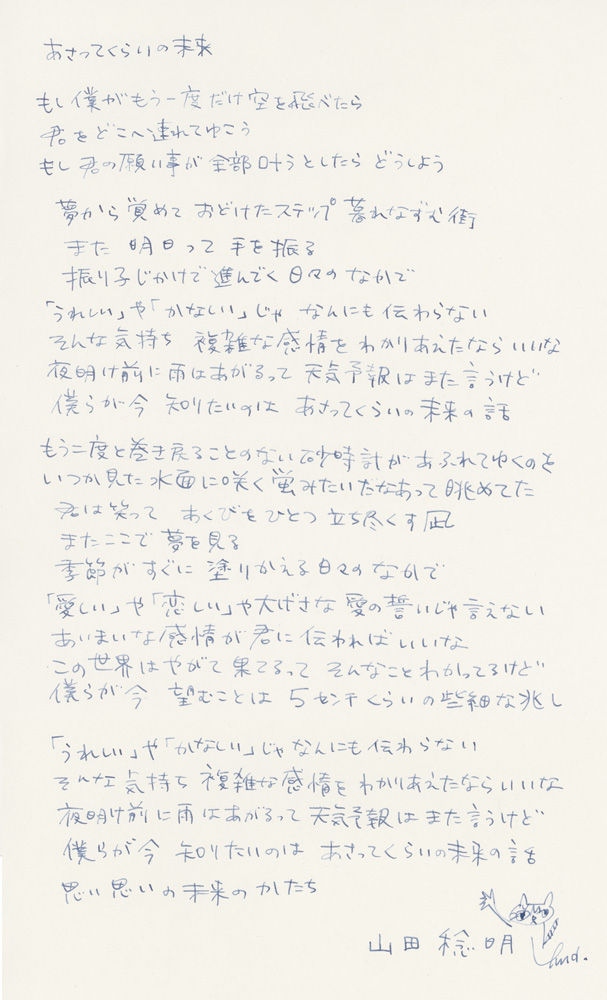 あさってくらいの未来
もし僕がもう一度だけ空を飛べたら
君をどこへ連れてゆこう
もし君の願い事が全部叶うとしたら どうしよう
夢から覚めて おどけたステップ 暮れなずむ街
また 明日って 手を振る
振り子じかけで 進んでく 日々のなかで
「うれしい」や「かなしい」じゃ なんにも伝わらない
そんな気持ち 複雑な感情を わかりあえたなら いいな
夜明け前に雨はあがるって 天気予報はまた言うけど
僕らが今 知りたいのは あさってくらいの未来の話
もう二度と巻き戻ることのない砂時計が あふれてゆくのを
いつか見た水面に咲く蛍みたいだなあって眺めてた
君は笑って あくびをひとつ 立ち尽くす凪
またここで 夢を見る
季節がすぐに 塗りかえる日々のなかで
「愛しい」や「恋しい」や大げさな 愛の誓いじゃ言えない
あいまいな感情が君に伝わればいいな
この世界はやがて果てるって そんなことわかってるけど
僕らが今 望むことは 5センチくらいの些細な兆し
「うれしい」や「かなしい」じゃ なんにも伝わらない
そんな気持ち 複雑な感情を わかりあえたなら いいな
夜明け前に雨はあがるって 天気予報はまた言うけど
僕らが今 知りたいのは あさってくらいの未来の話
思い思いの未来のかたち
山田 稔明